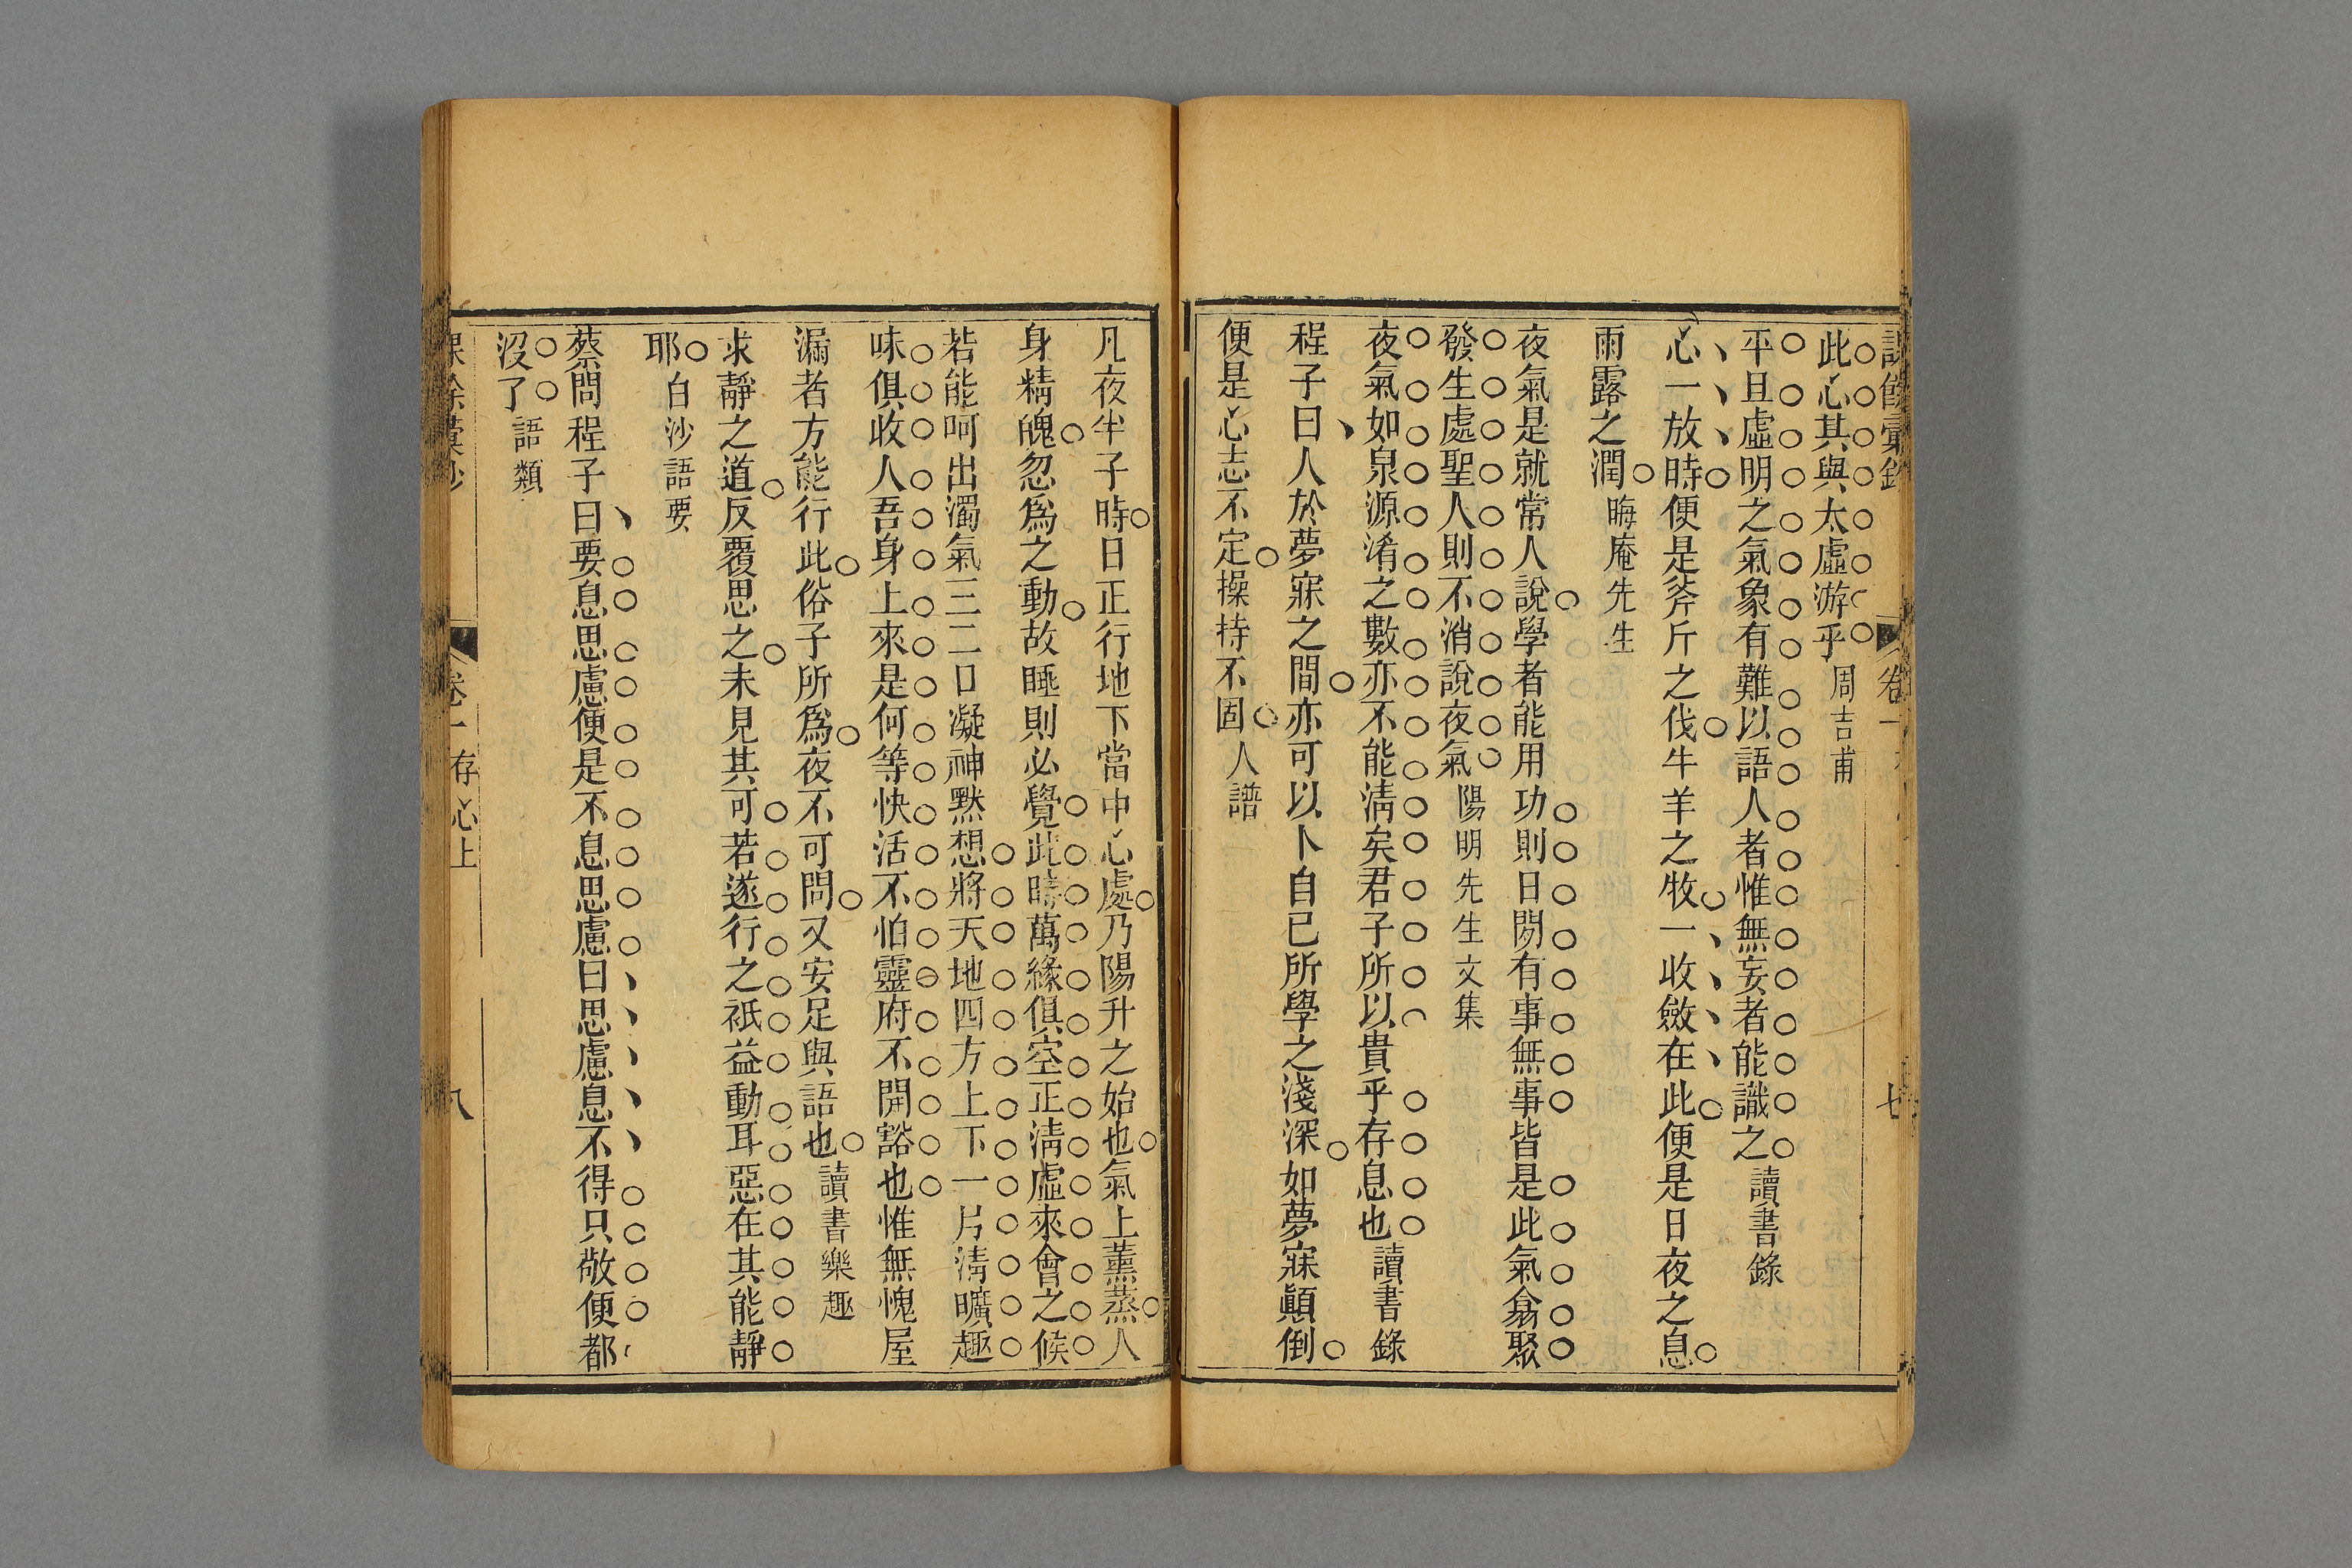 課餘彙鈔 卷一 七
此心其與太虛游乎 周吉甫
平旦虛明之氣象有難以語人者惟無妄者能識之 讀書錄
心一放時便是斧斤之伐牛羊之牧一收斂在此便是日夜之息
雨露之潤 晦庵先生
夜氣是就常人說學者能用功則日閒有事無事皆是此氣翕聚
發生處聖人則不消說夜氣 陽明先生文集
夜氣如泉源淆之數亦不能淸矣君子所以貴乎存息也 讀書錄
程子曰人於夢寐之間亦可以卜自已所學之淺深如夢寐顚倒
便是心志不定操持不固 人譜
凡夜半子時日正行地下當中心處乃陽升之始也氣上薰蒸人
身精魄忽爲之動故睡則必覺此時萬緣俱空正淸虛來會之候
若能呵出濁氣三二口凝神默想將天地四方上下一片淸曠趣
味俱收人吾身上來是何等快活不怕靈府不開豁也惟無愧屋
漏者方能行此俗子所爲夜不可問又安足與語也 讀書樂趣
求靜之道反覆思之未見其可若遂行之祇益動耳惡在其能靜
耶 白沙語要
蔡問程子曰要息思慮便是不息思慮曰思慮息不得只敬便都
沒了 語類
課餘彙鈔 卷一 存心上 八